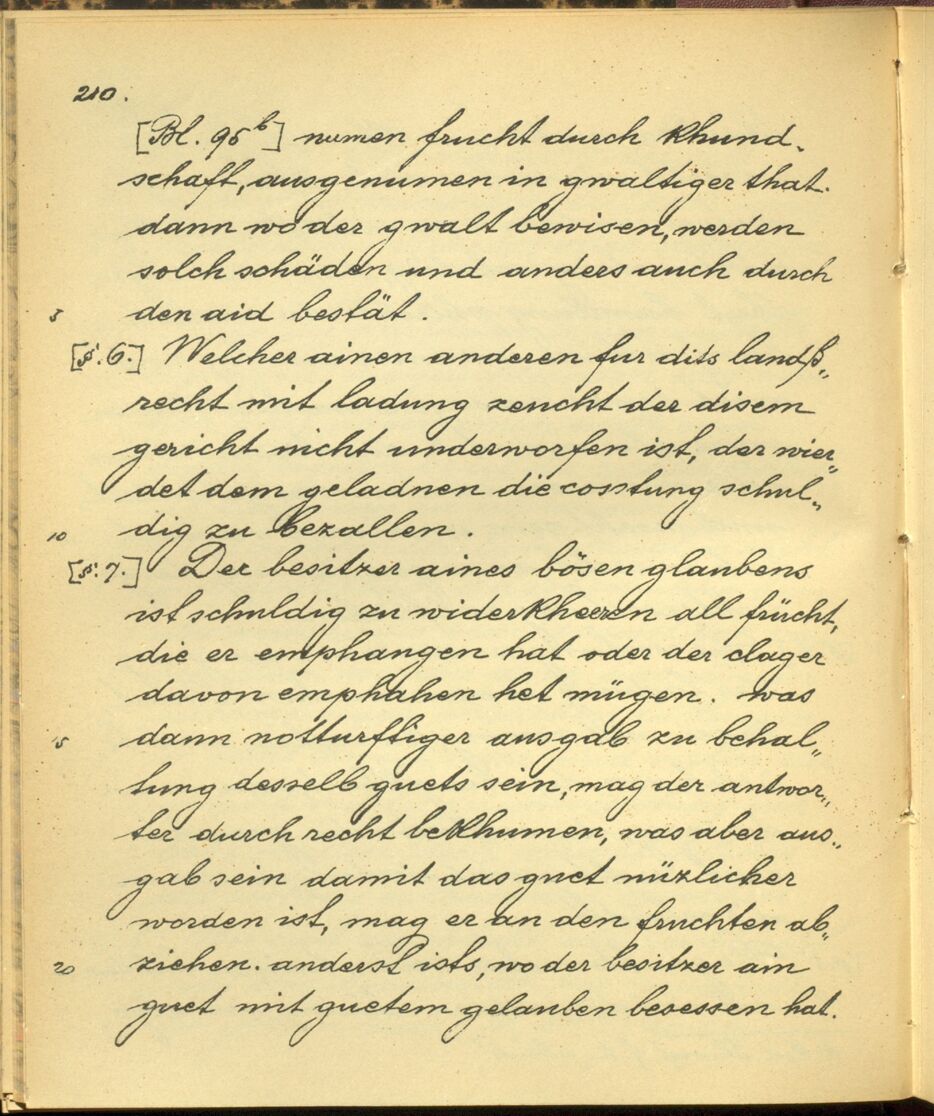 210.
[Bl. 95b] numen frucht durch khund„
schaft, ausgenumen in gwaltiger that.
dann wo der gwalt bewisen, werden
solch schäden und anders auch durch
5 den aid bestät.
[§. 6.] Welcher ainen anderen fur dits landß„
recht mit ladung zeucht der disem
gericht nicht underworfen ist, der wier„
det dem geladnen die cosstung schul„
10 dig zu bezallen.
[§. 7.] Der besitzer aines bösen glaubens
ist schuldig zu widerkheeren all frücht,
die er emphangen hat oder der clager
davon emphahen het mügen. was
15 dann notturfftiger ausgab zu behal„
tung desselb guets sein, mag der antwor„
ter durch recht bekhumen, was aber aus„
gab sein damit das guet nüzlicher
worden ist, mag er an den fruchten ab„
20 ziehen. anderst ists, wo der besitzer ain
guet mit guetem gelauben besessen hat.